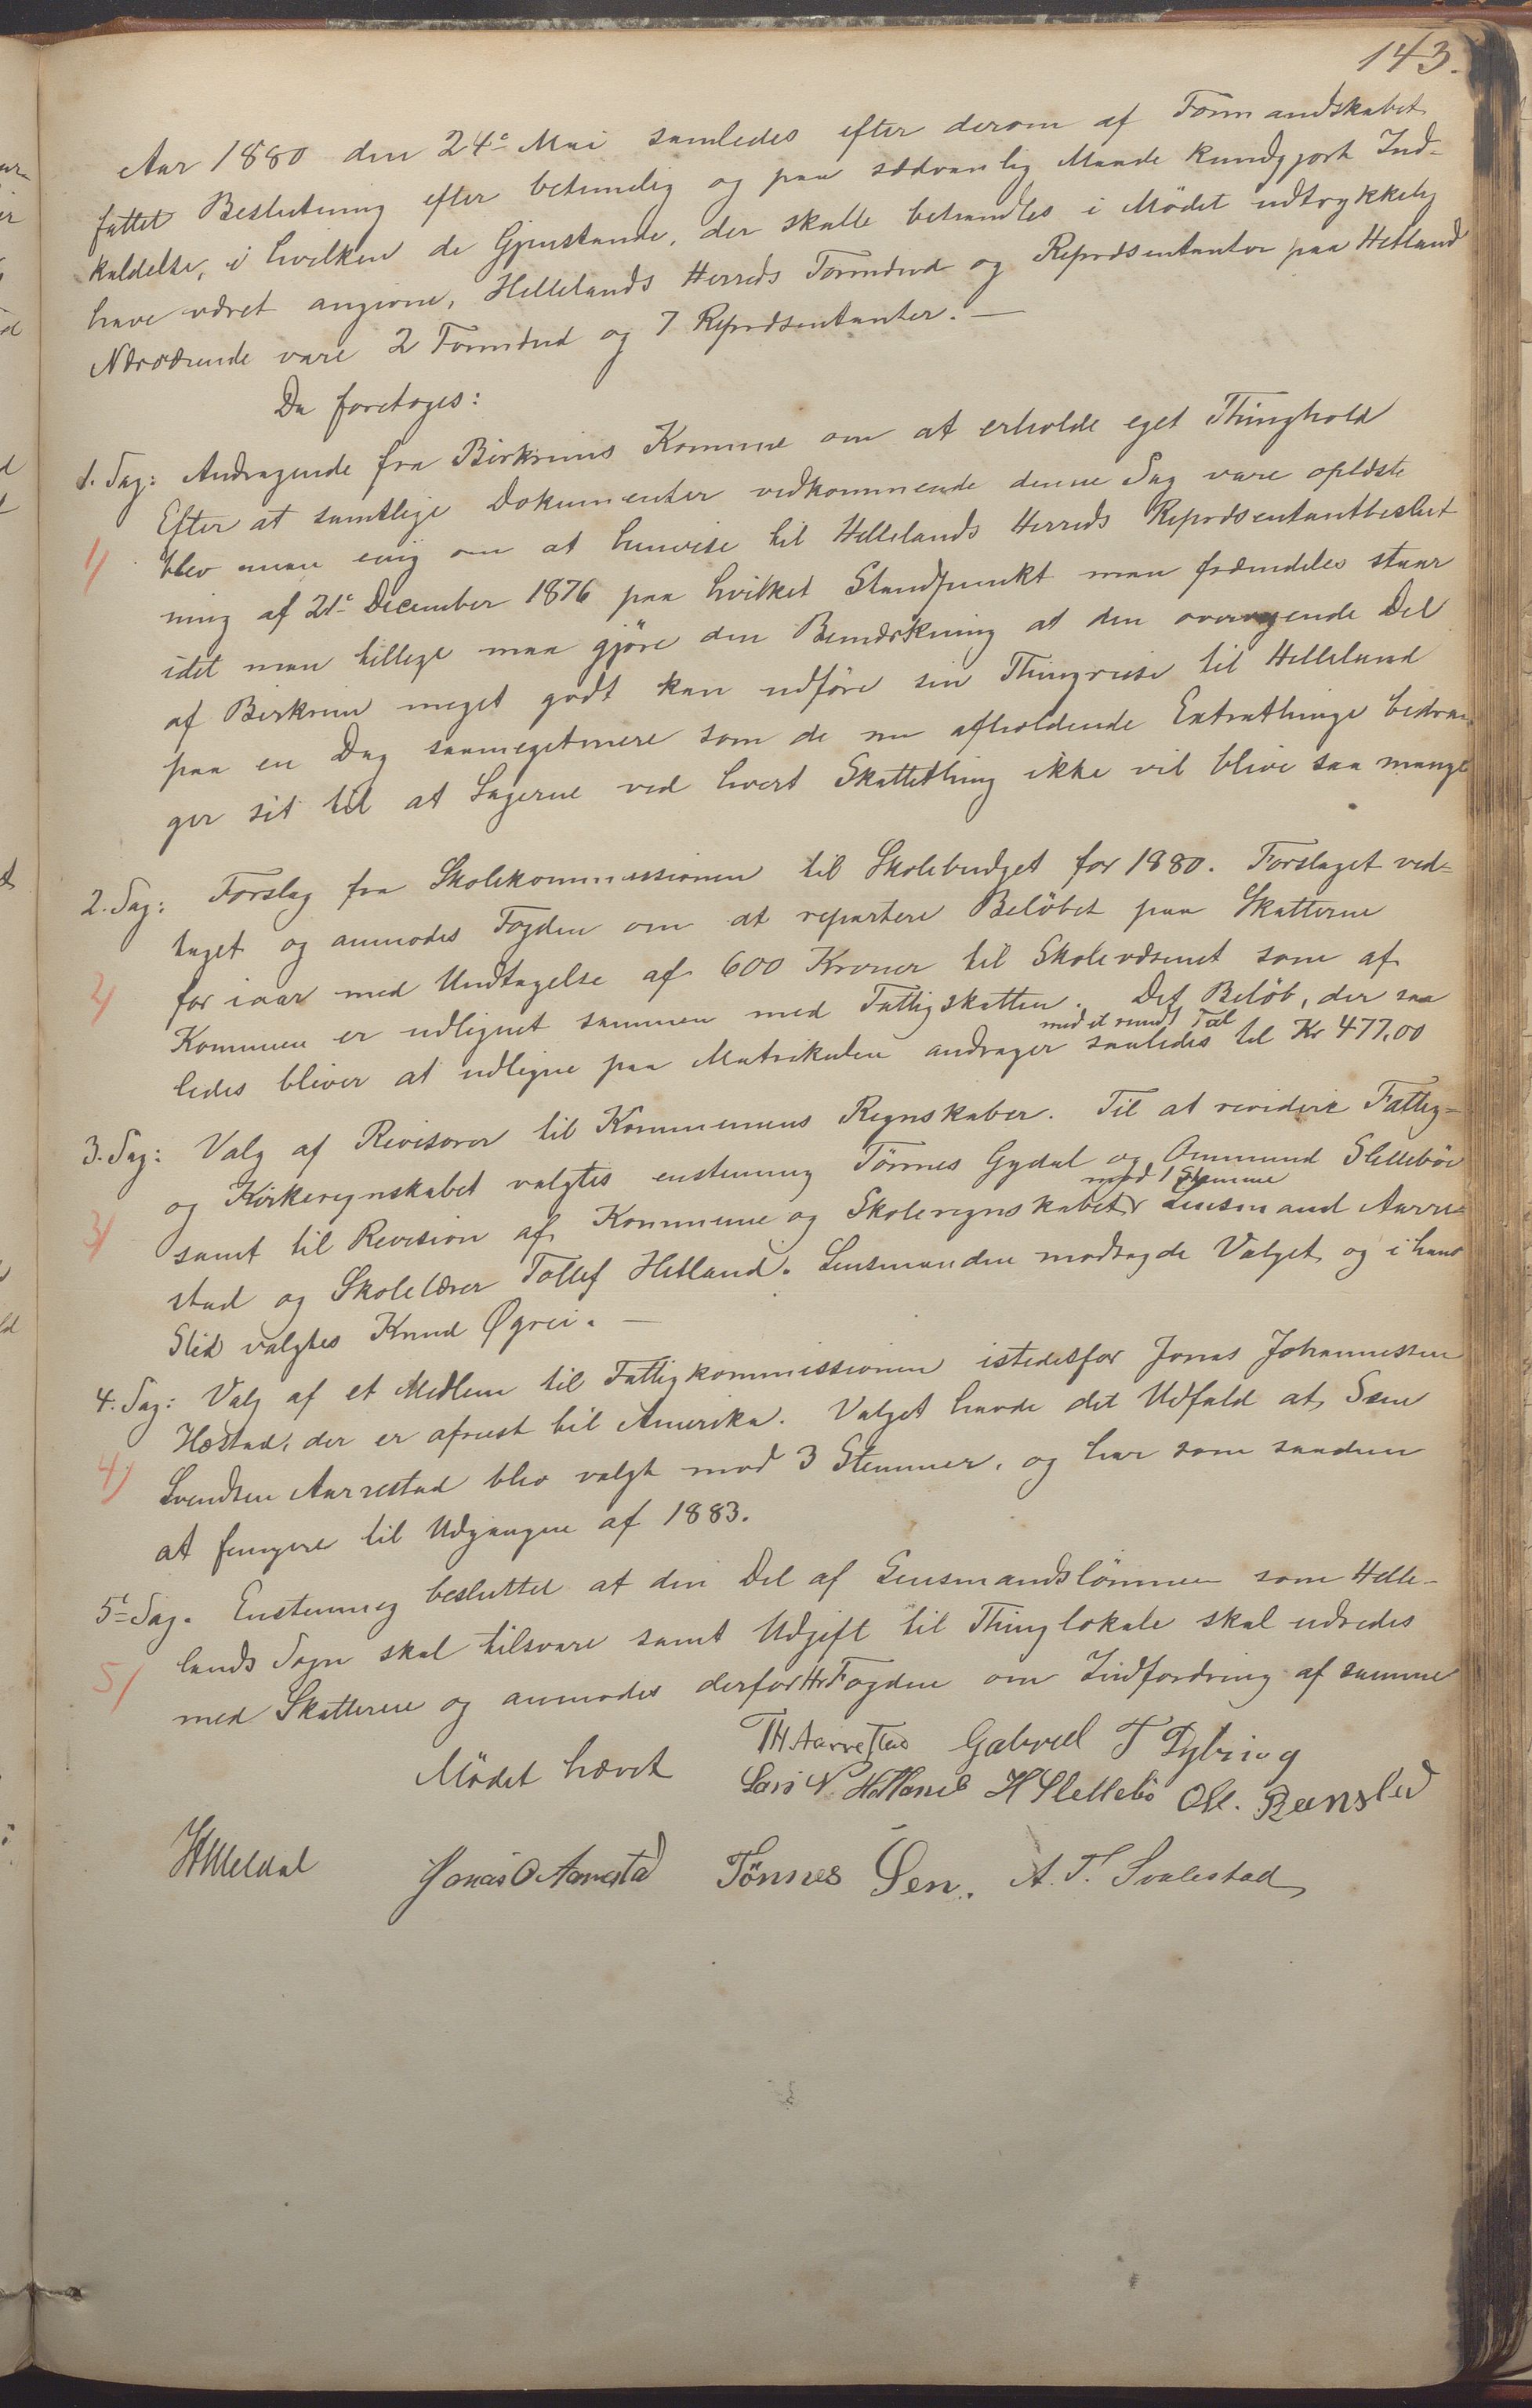 143.
Aar 1880 den 24e Mai samledes efter derom af Formandskabet
fattet Beslutning efter betimelig og paa sædvanlig Maade kundgjort Ind-
kaldelse, i hvilken de Gjenstande, der skulle behandles i Mødet udtrykkelig
have været angivne, Hellelands Herreds Formænd og Repræsentanter paa Hetland
Nærværende vare 2 Formænd og 7 Repræsentanter. —
Da foretoges:
1. Sag: Andragende fra Birkrims Komune om at erholde eget Thinghold
Efter at samtlige Dokumenter vedkommende denne Sag vare oplæste
1/ blev man enig om at henvise til Hellelands Herreds Repræsentantbeslut
ning af 21e December 1876 paa hvilket Standpunkt man fremdeles staar
idet man tillige maa gjøre den Bemærkning at den overveiende Del
af Birkrim meget godt kan udføre sin Thingreise til Helleland
paa en Dag saameget mere som de nu afholdende Extrathinge bidra-
ger sit til at Sagerne ved hvert Skattething ikke vil blive saa mange
2. Sag: Forslag fra Skolekommissionen til Skolebudget for 1880. Forslaget ved-
taget og anmodes Fogden om at repartere Beløbet paa Skatterne
2/ for iaar med Undtagelse af 600 Kroner til Skolevæsenet som af
Komunen er udlignet sammen med Fattigskatten. Det Beløb, der saa
med et rundt Tal
ledes bliver at udligne paa Matrikulen andrager saaledes til Kr 477,00
3. Sag: Valg af Revisorer til Kommunens Regnskaber. Til at revidere Fattig-
og Kirkeregnskabet valgtes enstemmig Tønnes Gydal og Ommund Slettebøe
med 1 Stemme
3/ samt til Revision af Kommune og Skoleregnskabet Lensmand Aarre-
stad og Skolelærer Tollef Hetland. Lensmanden modtagde Valget og i hans
Sted valgtes Knud Øgrei. —
4. Sag: Valg af et Medlem til Fattigkommissionen istedetfor Jonas Johannessen
Hæstad, der er afreist til Amerika. Valget havde det Udfald at Sven
4/ Svendsen Aarrestad blev valgt med 3 Stemmer, og har som saadan
at fungere til Udgangen af 1883.
5te Sag. Enstemmig besluttet at den Del af Lensmandslønnen som Helle-
lands Sogn skal tilsvare samt Udgift til Thinglokale skal udredes
5/ med Skatterne og anmodes derfor Hr Fogden om Indfordring af samme
Mødet hævet TH Aarrestad Gabriel T Dybing
Lars N Hetland H Slettebø Ole. Ramsled
Jonas O Aarrestad Tønnes Sen. A. T. Svalestad